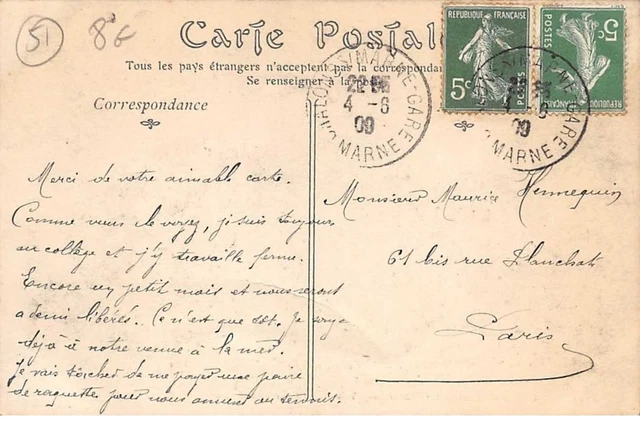 51
8€
Carte Postale
Tous les pays étrangers n'acceptent pas la correspondance
Se renseigner à la poste
RÉPUBLIQUE FRANÇAISE
5c
POSTES
RÉPUBLIQUE FRANÇAISE
5c
POSTES
CHALONS-S-MARNE-GARE
4 -6
09
MARNE
4 -6
09
MARNE
Correspondance
Merci de votre aimable carte.
Comme vous le voyez, je suis toujours
au collège et j'y travaille ferme.
Encore un petit mois et nous serons
a demi libérés. Ce n'est que tôt. Je songe
déjà à notre venue à la mer.
Je vais tâcher de me payer une paire
de raquettes pour nous amuser au tennis.
Monsieur Maurice Hennequin
61 bis rue Planchat
Paris